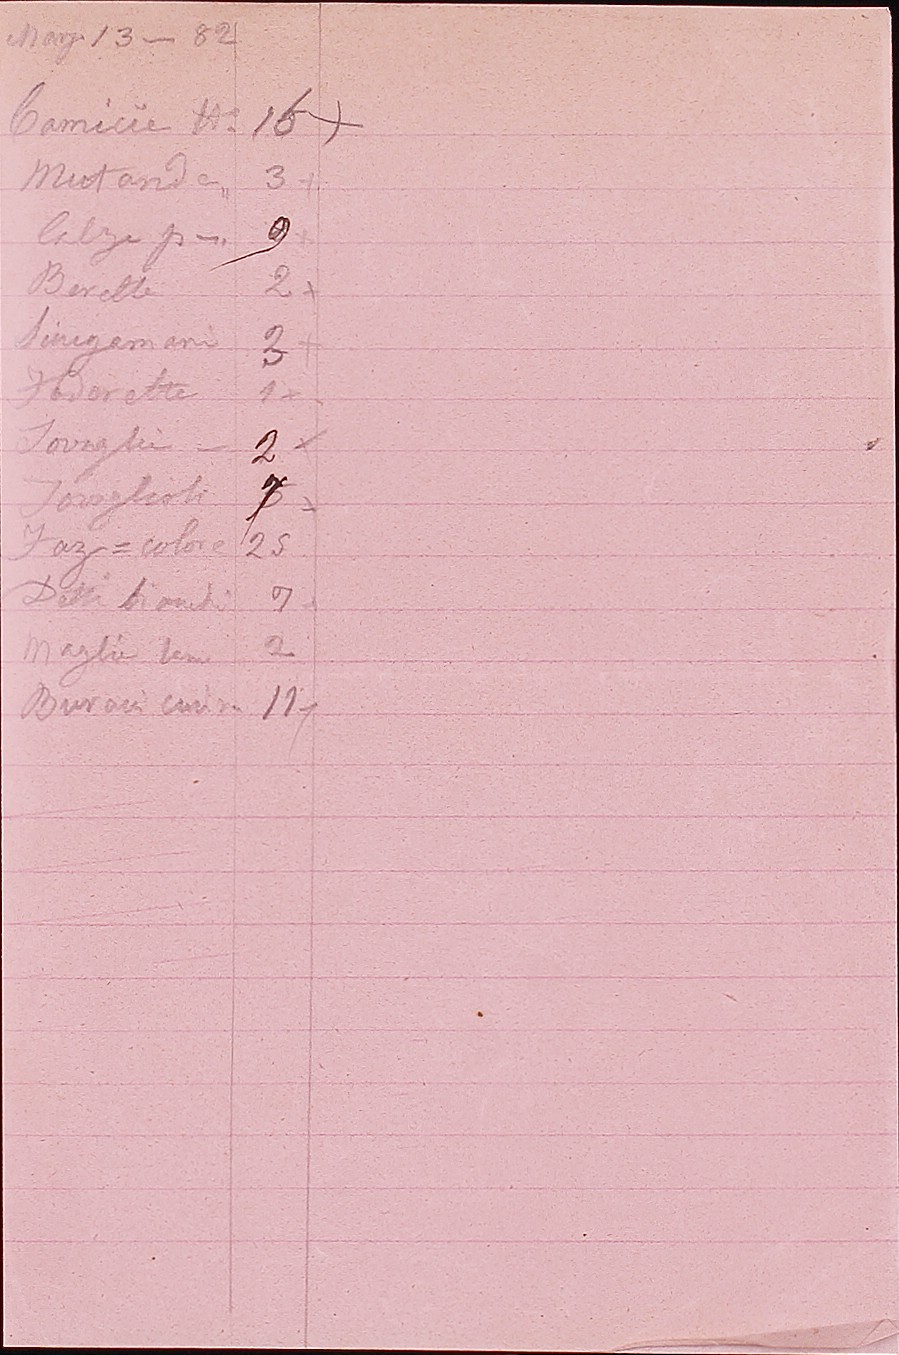 Marz 13 — 82
Camicie No 16 +
Mutande " 3 +
Calze p — " 9 +
Berette 2 x
Siugamani 3 +
Foderette 1 x
Tovaglie — 2 x
Tovaglioli 7 x
Faz = colore 25
Detti bianchi 7
Maglie 2
11